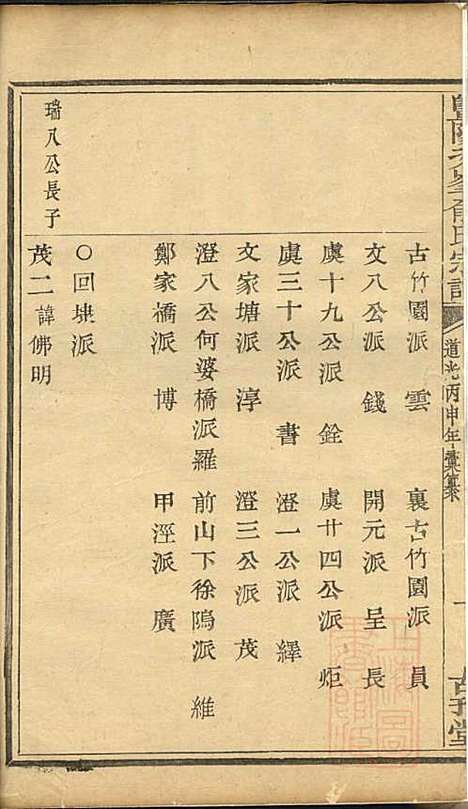 道光丙申年彙纂
古竹園派 雲 裏古竹園派 員
文八公派 錢 開元派 呈 長
虞十九公派 銓 虞廿四公派 炬
虞三十公派 書 澄一公派 繹
文家塘派 淳 澄三公派 茂
澄八公何婆橋派 羅 前山下徐隖派 維
鄭家橋派 博 甲淫派 廣
○回㘰派
瑞八公長子
茂二 諱佛明